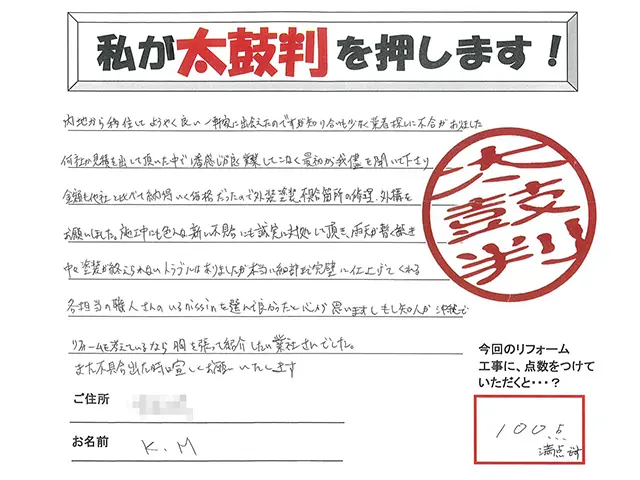 私が太鼓判を押します！
内地から移住してようやく良い一軒家に出会えたのですが知り合いも少なく業者探しに不合がありました
何社か見積を出して頂いた中で
金額も他社と比べて納得いく価格だったので外装塗装、不具合箇所の修理、外構を
お願いしました。施工中にも色んな新しい不具合にも誠実に対処して頂き、雨天が暫く続き
中々塗装が終えられないトラブルはありましたが本当に細部まで完璧に仕上げてくれる
各担当の職人さんのいる を選んで良かったと心から思います もし知人が沖縄で
リフォームを考えているなら胸を張って紹介したい業社さんでした。
また不具合出た時は宜しくお願いいたします
太鼓判
今回のリフォーム
工事に、点数をつけて
いただくと・・・？
100点
満点です
ご住所
お名前 K.M